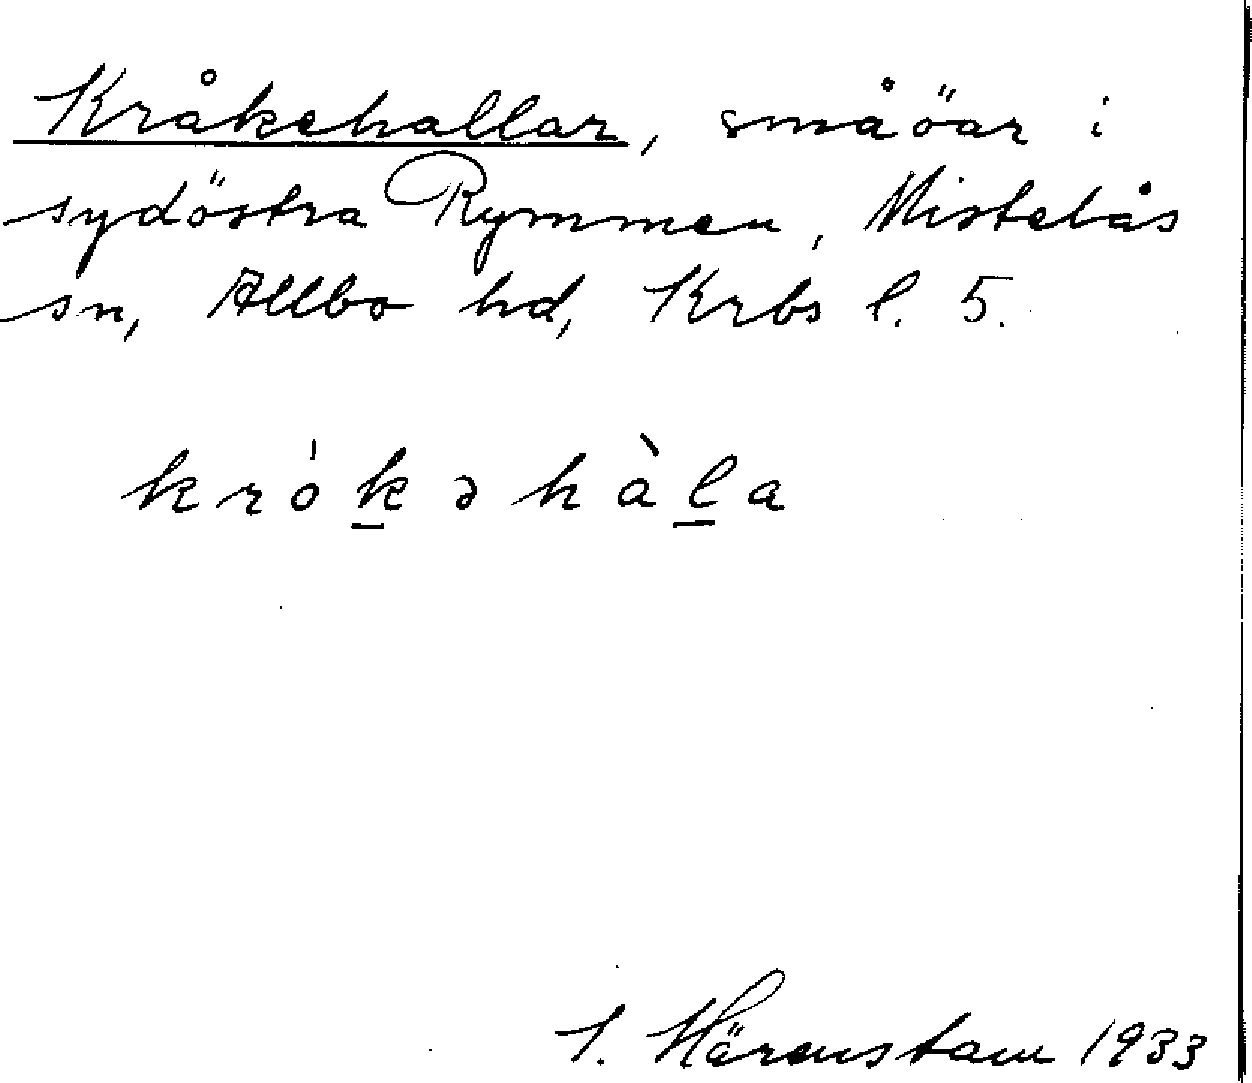 Kråkehallar, småöar i
sydöstra Rymmen, Mistelås
sn, Allbo hd, Krbs l. 5.
krókəhàla
1. Härenstam 1933